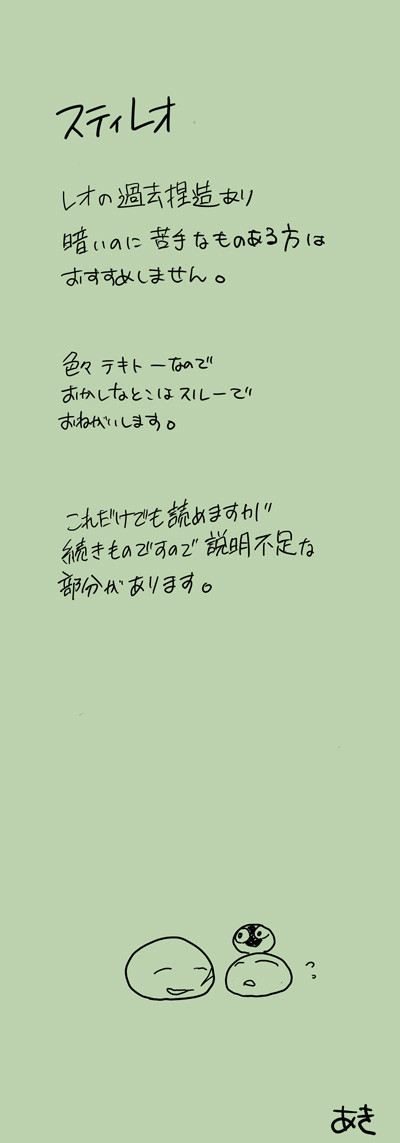 スティレオ
レオの過去捏造あり
暗いのに苦手なものある方は
おすすめしません。
色々テキトーなので
おかしなとこはスルーで
おねがいします。
これだけでも読めますが
続きものですので説明不足な
部分があります。
あき